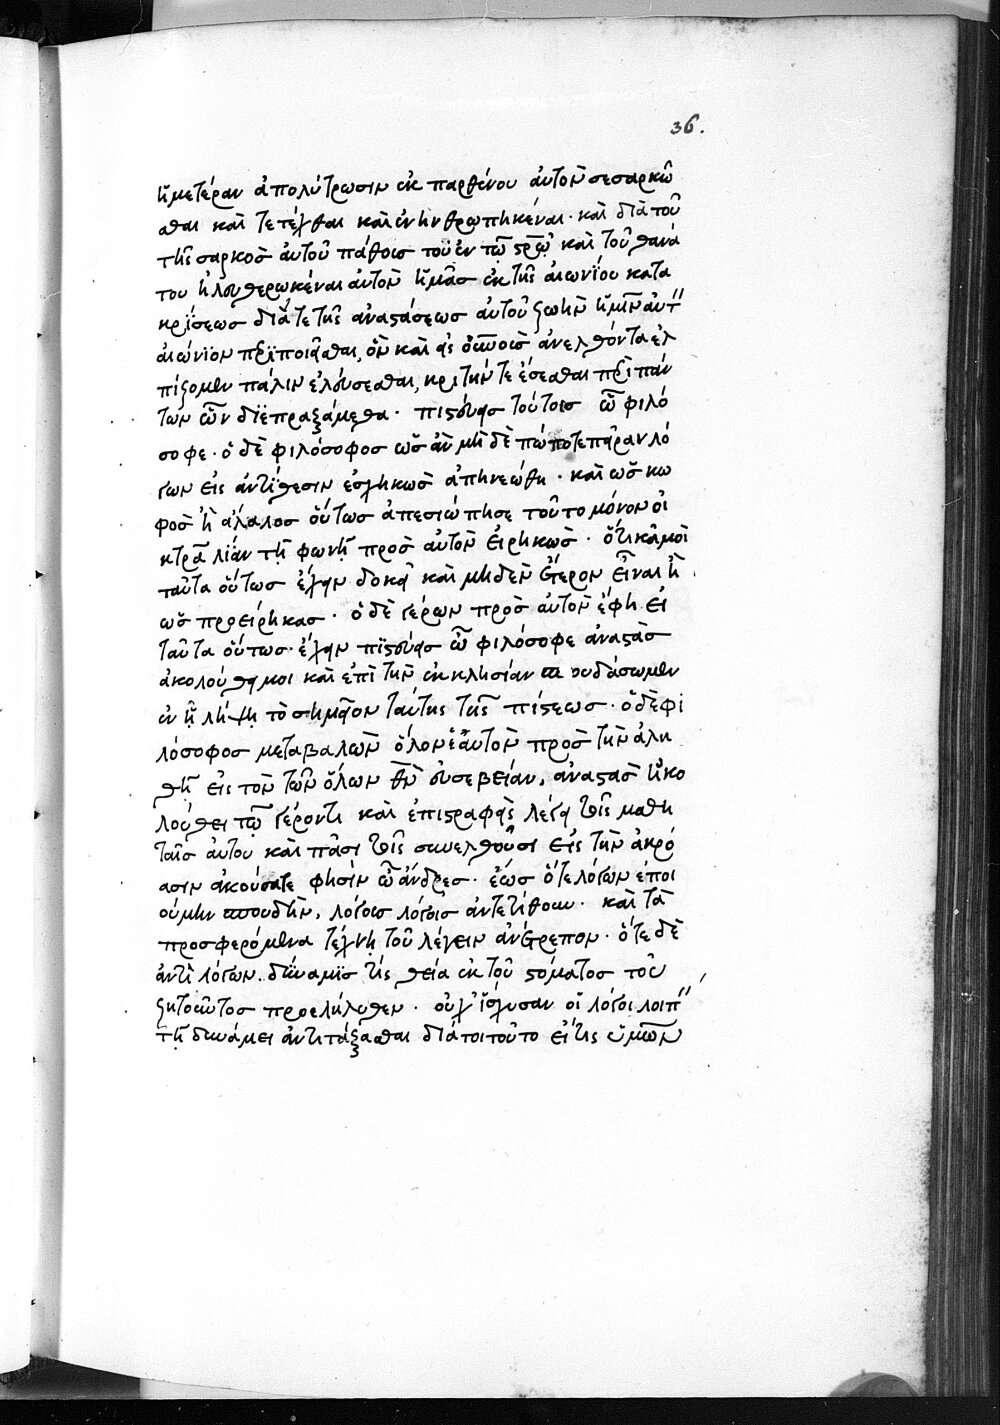 36.
ἡμετέραν ἀπολύτρωσιν ἐκ παρθένου αὐτὸν σεσαρκῶ
σθαι καὶ τετέχθαι καὶ ἐνηνθρωπηκέναι· καὶ διὰ τοῦ
τῆς σαρκὸς αὐτοῦ πάθους τοῦ ἐν τῶ σρῶ καὶ τοῦ θανά
του ἠλευθερωκέναι αὐτὸν ἡμᾶς ἐκ τῆς αἰωνίου κατα
κρίσεως διά τε τῆς ἀναστάσεως αὐτοῦ ζωὴν ἡμῖν αὐτ
αἰώνϊον περϊποιεῖσθαι, ὃν καὶ εἰς οὐνοὺς ἀνελθόντα ἐλ
πίζομεν πάλιν ἐλεύσεσθαι, κριτήν τε ἔσεσθαι περὶ πάν
των ὧν διεπραξάμεθα· πιστεύεις τούτοις ὦ φιλό
σοφε· ὁ δὲ φιλόσοφος ὡς ἂν μὴ δὲ πώποτε πεῖραν λό
γων εἰς ἀντίθεσιν ἐσχηκὼς ἀπηνεώθη· καὶ ὡς κω
φὸς ἢ ἄλαλος οὕτως ἀπεσιώπησε τοῦτο μόνον οἰ
κτρᾶ λίαν τῇ φωνῇ πρὸς αὐτὸν εἰρηκὼς· ὅτι κἀμοὶ
ταῦτα οὕτως ἔχειν δοκεῖ καὶ μηδὲν ἕτερον εἶναι ἢ
ὡς προείρηκας· ὁ δὲ γέρων πρὸς αὐτὸν ἔφη εἰ
ταῦτα οὕτως· ἔχειν πϊστεύεις ὦ φιλόσοφε ἀναστὰς
ἀκολούθει μοι καὶ ἐπὶ τὴν ἐκκλησίαν σπουδάσωμεν
ἐν ᾗ λήψῃ τὸ σημεῖον ταύτης τῆς πίστεως· ὁ δὲ φι
λόσοφος μεταβαλὼν ὅλον ἑαυτὸν πρὸς τὴν ἀλη
θῆ εἰς τὸν τῶν ὅλων θν εὐσεβείαν, ἀναστὰς ἠκο
λούθει τῶ γέροντι καὶ ἐπιστραφεὶς λέγει τοῖς μαθη
ταῖς αὐτοῦ καὶ πᾶσι τοῖς συνελθοῦσι εἰς τὴν ἀκρό
ασιν ἀκούσατε φησὶν ὦ ἄνδρες· ἕως ὅτε λόγων ἐποι
ούμην σπουδὴν, λόγοις λόγοις ἀντετίθουν· καὶ τὰ
προσφερόμενα τέχνῃ τοῦ λέγειν ἀνέτρεπον· ὅτε δὲ
ἀντὶ λόγων δύναμϊς τίς θεία ἐκ τοῦ στόματος τοῦ
ζητοῦντος προελήλυθεν· οὐχ' ἴσχυσαν οἱ λόγοι λοιπ
τῇ δυνάμει ἀντιτάξασθαι διάτοιτοῦτο εἴ τις ὑμῶν